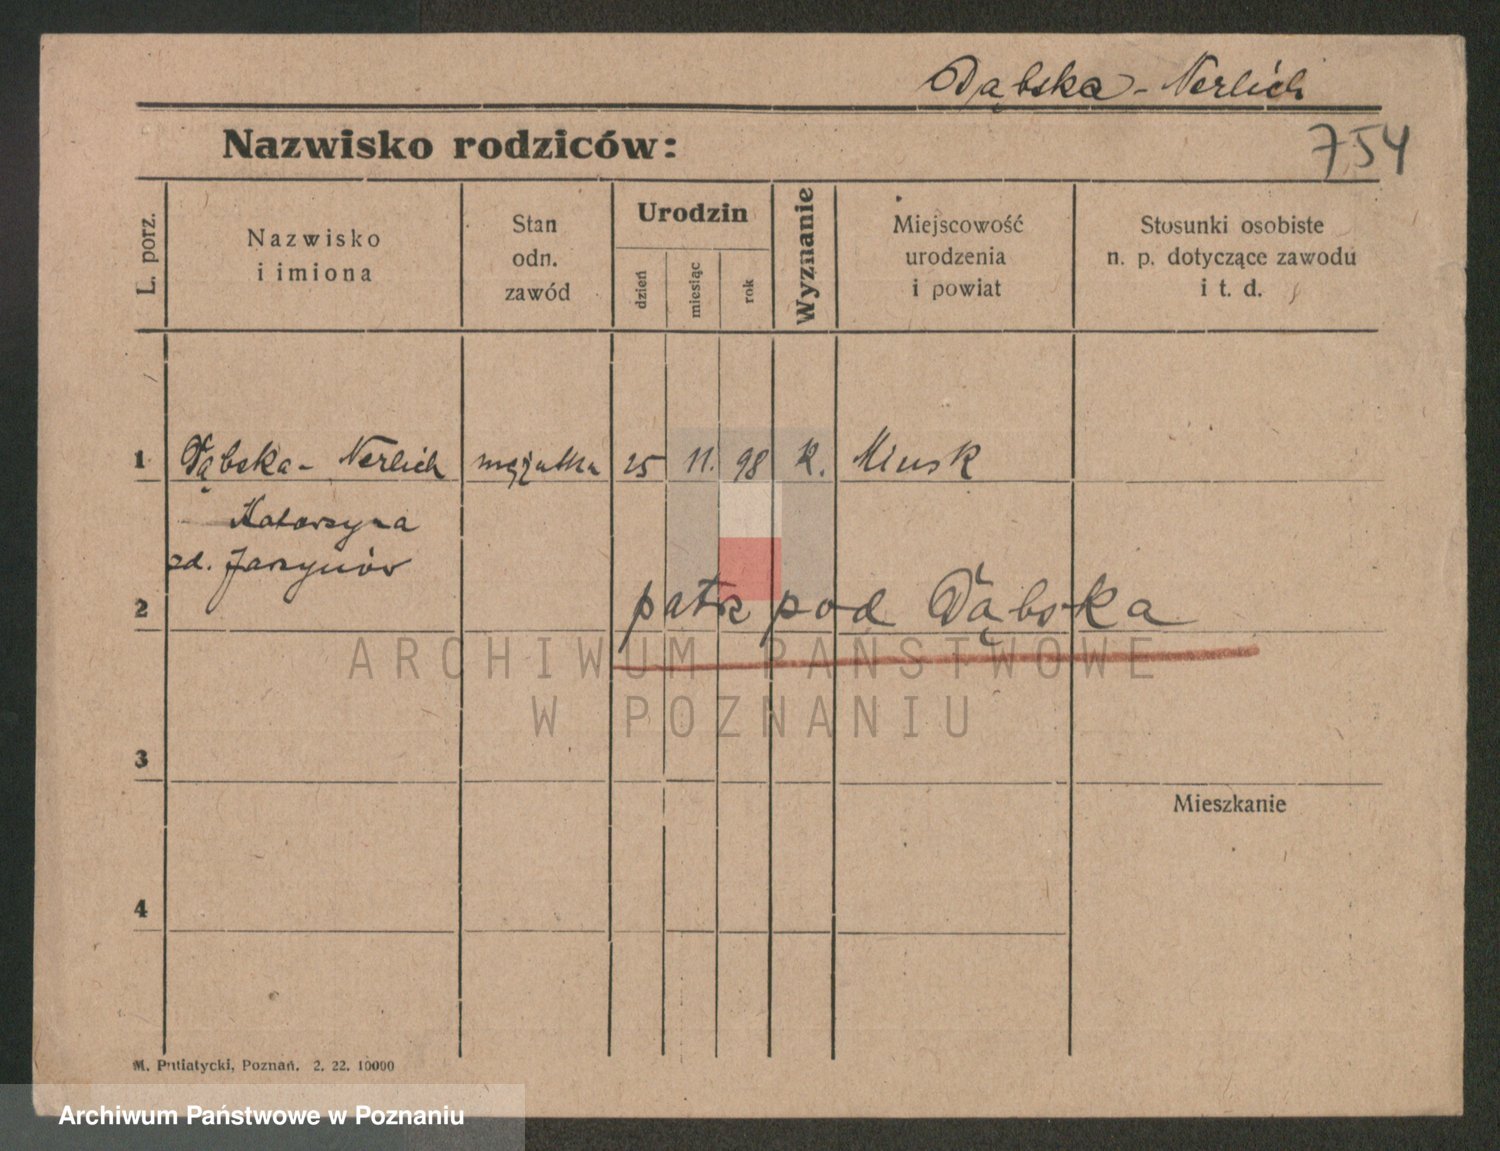 Dąbska - Nerlich
Nazwisko rodziców:
754
L. porz.
Nazwisko
i imiona
Stan
odn.
zawód
Urodzin
dzień
miesiąc
rok
Wyznanie
Miejscowość
urodzenia
i powiat
Stosunki osobiste
n. p. dotyczące zawodu
i t. d.
1 Dąbska - Nerlich mężatka 25 11. 98 K. Minsk
Katarzyna
zd. Jarzynów
2 patrz pod Dąbska
ARCHIWUM PAŃSTWOWE
W POZNANIU
3
Mieszkanie
4
M. Putiatycki, Poznań. 2. 22. 10000
Archiwum Państwowe w Poznaniu